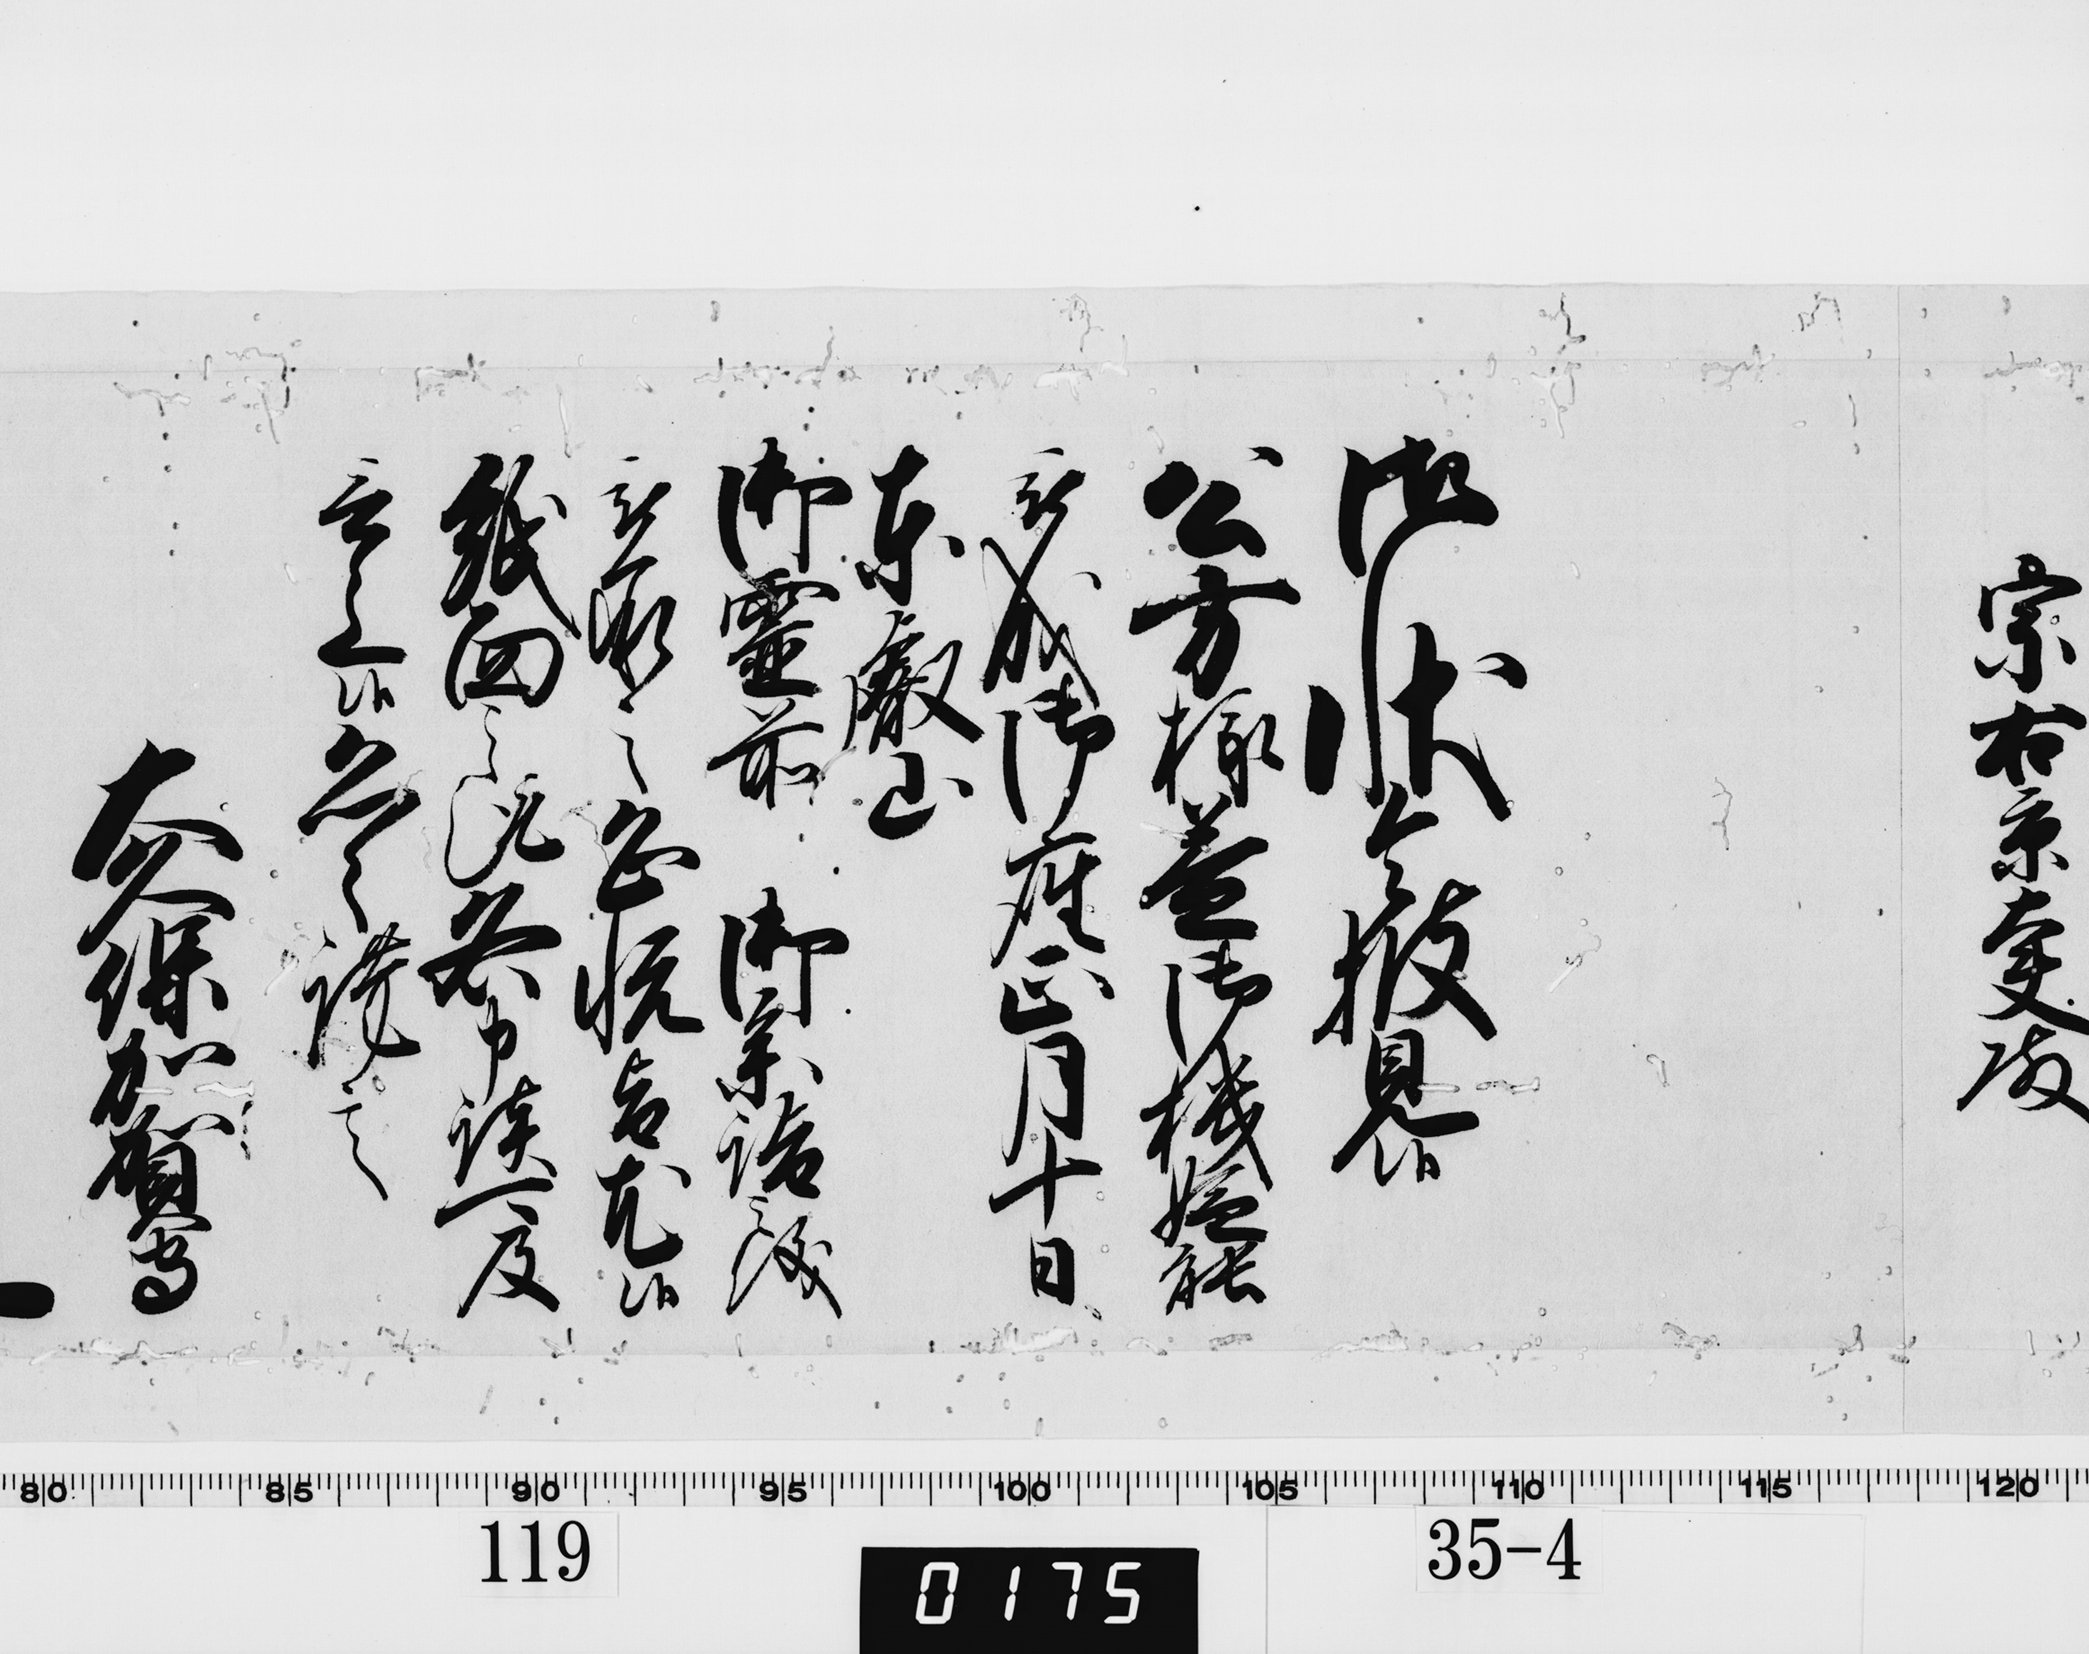 宗右京大夫殿
御状令披見候
公方様益御機嫌能
被成御座正月十日
東叡山
御霊前 御参詣之儀
被承之恐悦旨尤候
紙面之趣各申談一度
言上候恐々謹言
大久保加賀守
80 85 90 95 100 105 110 115 120
119 0175 35-4